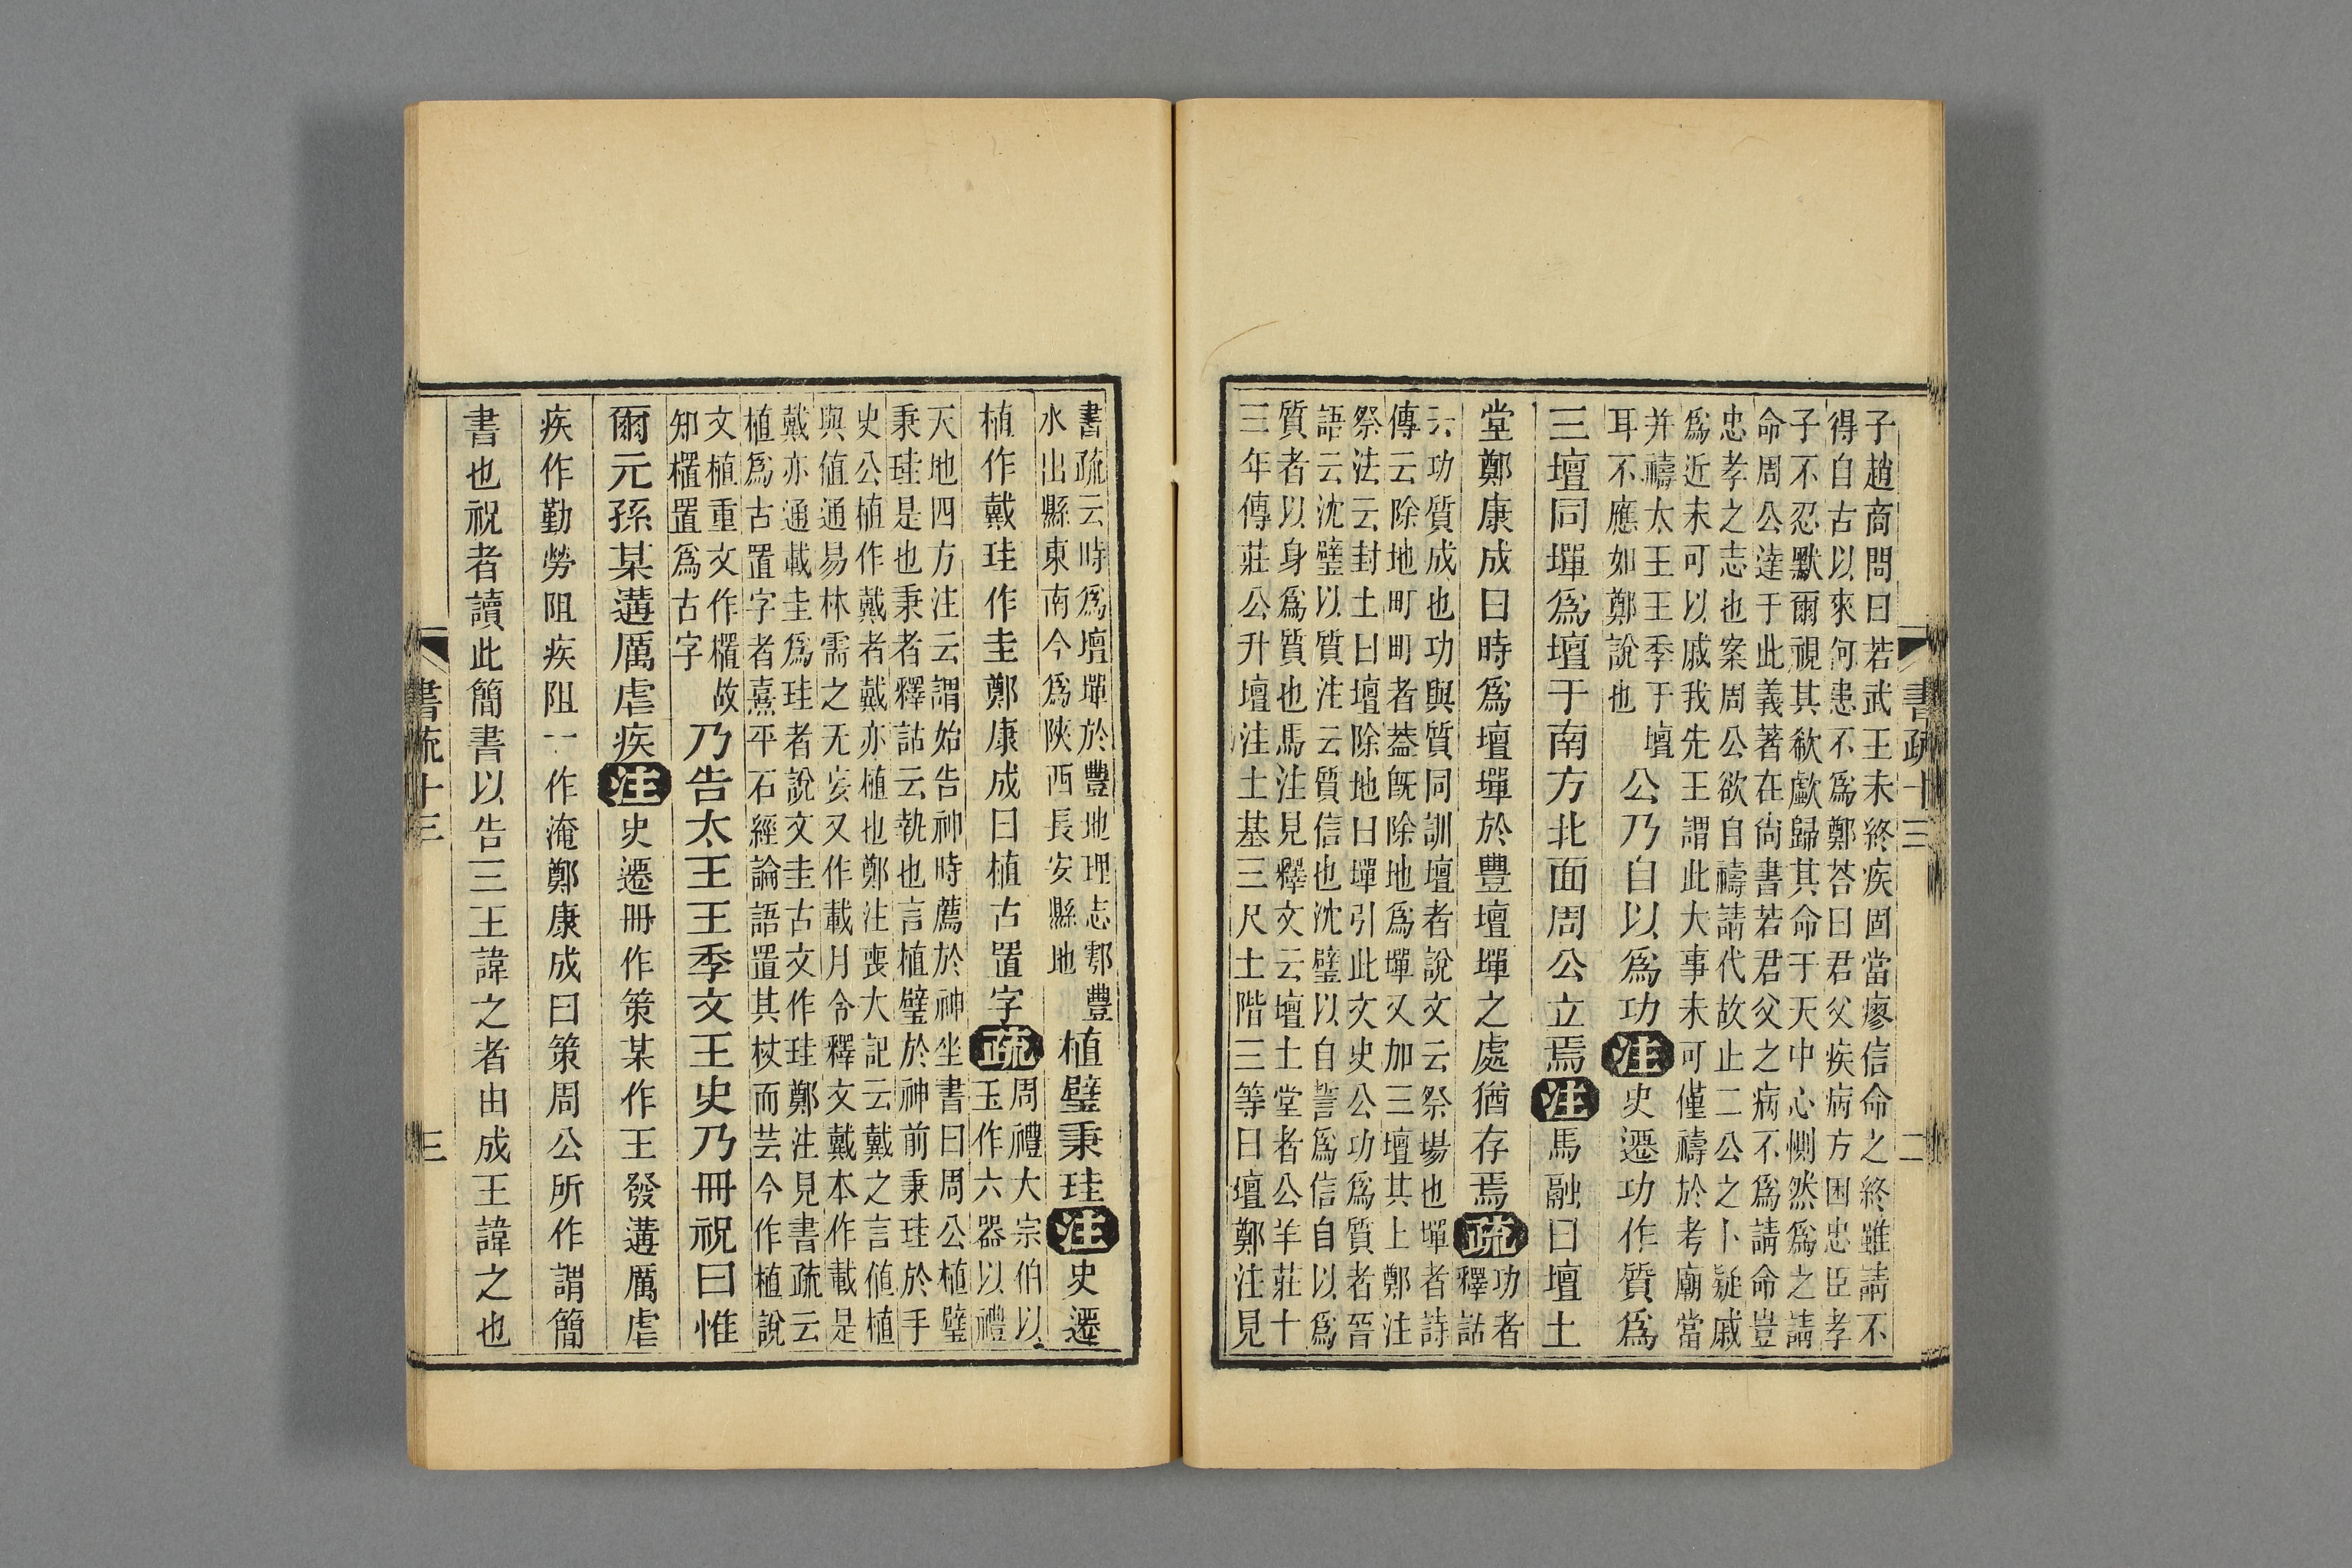 子趙商問曰若武王未終疾固當瘳信命之終雖請不
得自古以來何患不爲鄭荅曰君父疾病方困忠臣孝
子不忍默爾視其欷歔歸其命于天中心惻然爲之請
命周公達于此義著在尚書若君父之病不爲請命豈
忠孝之志也案周公欲自禱請代故止二公之卜疑戚
爲近未可以戚我先王謂此大事未可僅禱於考廟當
并禱太王王季于壇
耳不應如鄭說也
公乃自以爲功注史遷功作質爲
三壇同墠爲壇于南方北面周公立焉注馬融曰壇土
堂鄭康成曰時爲壇墠於豐壇墠之處猶存焉疏
功者
釋詁
云功質成也功與質同訓壇者說文云祭場也墠者詩
傳云除地町町者蓋旣除地爲墠又加三壇其上鄭注
祭法云封土曰壇除地曰墠引此文史公功爲質者晉
語云沈璧以質注云質信也沈璧以自誓爲信自以爲
質者以身爲質也馬注見釋文云壇土堂者公羊莊十
三年傳莊公升壇注土基三尺土階三等曰壇鄭注見
書疏十三
二
書疏云時爲壇墠於豐地理志鄠豐
水出縣東南今爲陝西長安縣地
植璧秉珪注史遷
植作戴珪作圭鄭康成曰植古置字疏
周禮大宗伯以
玉作六器以禮
天地四方注云謂始告神時薦於神坐書曰周公植璧
秉珪是也秉者釋詁云執也言植璧於神前秉珪於手
史公植作戴者戴亦植也鄭注喪大記云戴之言値植
與値通易林需之无妄又作載月令釋文戴本作載是
戴亦通載圭爲珪者說文圭古文作珪鄭注見書疏云
植爲古置字者熹平石經論語置其杖而芸今作植說
文植重文作櫃故
知櫃置爲古字
乃告太王王季文王史乃冊祝曰惟
爾元孫某遘厲虐疾注史遷冊作策某作王發遘厲虐
疾作勤勞阻疾阻一作淹鄭康成曰策周公所作謂簡
書也祝者讀此簡書以告三王諱之者由成王諱之也
書疏十三
三